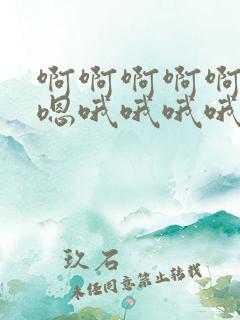 啊啊啊啊啊
嗯哦哦哦哦
玖石
未经同意禁止转载